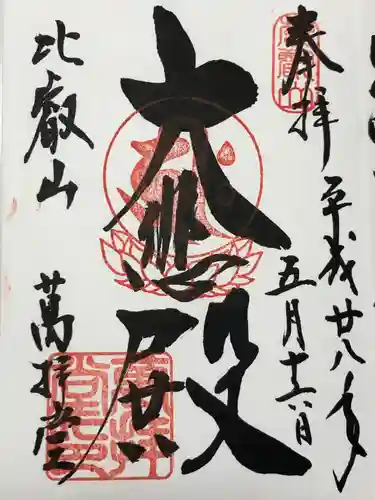 奉拝
平成廿八年
五月十六日
大悲殿
比叡山
萬拝堂